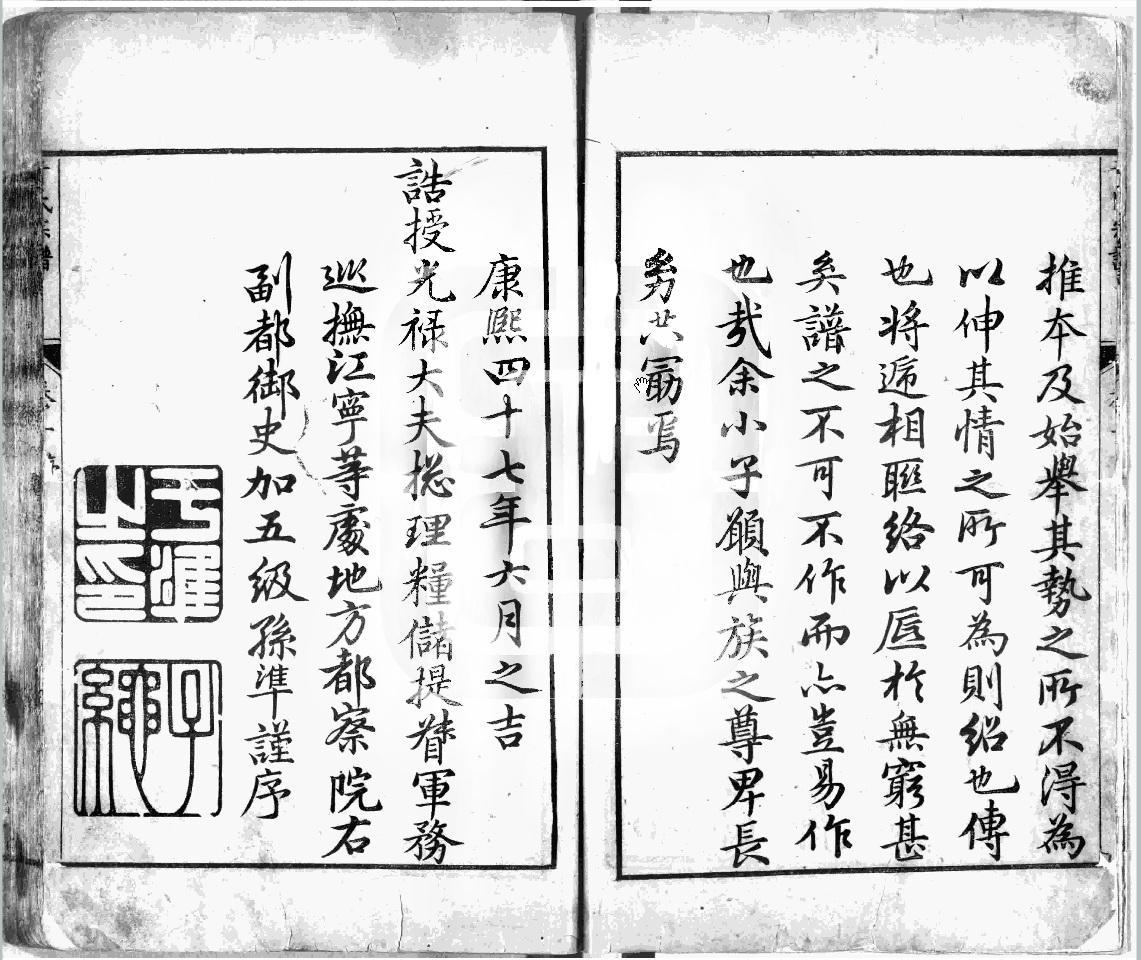 推本及始舉其勢之所不得為
以伸其情之所可為則紹也傳
也将遞相聮絡以於無窮甚
矣譜之不可不作而亦豈易作
也哉余小子願與族之尊卑長
㓜共勗焉
康熙四十七年六月之吉
誥授光禄大夫揔理糧儲提督軍務
巡撫江寧等處地方都察院右
副都御史加五級孫準謹序
于準之印
子繩